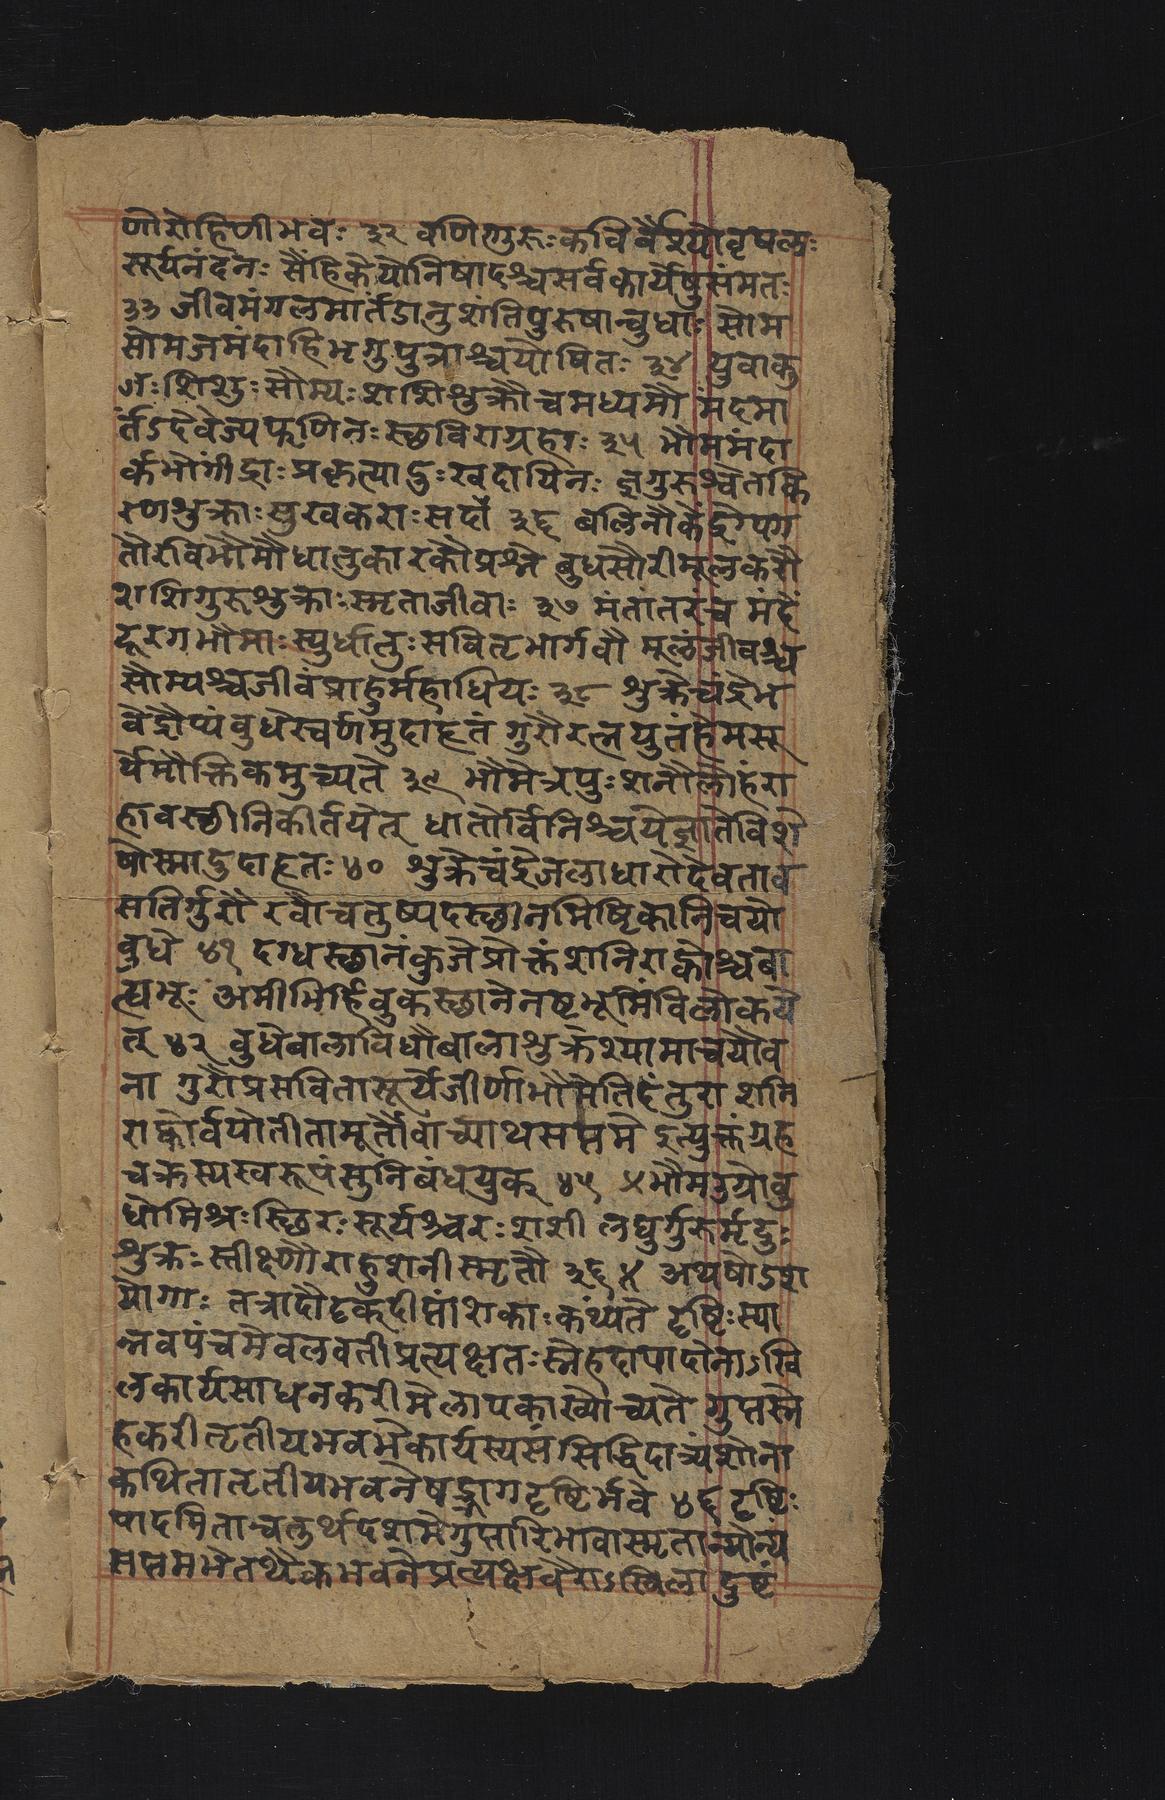 णीरोहिणीभवः ३२ वणिग्गुरुःकविर्वैश्यौवृषलः
सूर्यनंदनः सैंहिकेयोनिषादश्चसर्वकार्येषुसंमतः
३३ जीवमंगलमार्तंडानुशंतिपुरुषान्बुधाः सोम
सोमजमंदाहिभृगुपुत्राश्चयोषितः ३४ युवाकु
जःशिशुःसौम्यःशशिशुक्रौचमध्यमौ मंदमा
र्तंऽदेवेज्यफणिनःस्छविराग्रहाः ३५ भौममंदा
र्कभोगींद्राःप्रकृत्यादुःखदायिनः ज्ञगुरुश्वेतकि
रणशुक्राःसुखकराःसदा ३६ बलिनौकेंद्रोपग
तौरविभौमौधातुकारकौप्रश्ने बुधसौरीमूलकरौ
शशिगुरुशुक्राःस्मृताजीवाः ३७ मंतातरंच मंदें
दूरगभौमाःस्युर्धातुःसवितृभार्गवौ मूलंजीवश्च
सौम्यश्चजीवंप्राहुर्महाधियः ३८ शुक्रेचंद्रेभ
वेद्रौप्यंबुधेस्वर्णमुदाहृतं गुरौरत्नयुतंहेमसू
र्येमौक्तिकमुच्यते ३९ भौमेत्रपुःशनौलोहंरा
हावस्छीनिकीर्तयेत् धातोर्विनिश्चयेज्ञातेविशे
षोस्मादुदाहृतः ४० शुक्रेचंद्रेजलाधारोदेवताव
सतिर्गुरौ रवौचतुष्पदस्छानमिष्टिकानिचयो
बुधे ४१ दग्धस्छानंकुजेप्रोक्तंशनिराहोश्चबा
ह्यभूः अमीभिर्हिबुकस्छानेनष्टभूमिंविलोकये
त् ४२ बुधेबालाविधौबालाशुक्रेश्यामाचयौव
ना गुरौप्रसवितासूर्येजीर्णाभौमेतिहंतुरा शनि
राहोर्वयोतीतामूर्तौवाच्याथसप्तमे इत्युक्तंग्रह
चक्रस्यस्वरूपंसुनिबंधयुक् ४५ ४भौमउग्रोबु
धोमिश्रःस्छिरःसूर्यश्चरःशशी लघुर्गुरुर्मृदुः
शुक्रःस्तीक्ष्णौराहुशनीस्मृतौ ३६ ४ अथषोऽश
योगाः तत्रादौदृक्दीप्तांशकाःकंथ्यते दृष्टिःस्या
न्नवपंचमेबलवतीप्रत्यक्षतःस्नेहदापादोनाऽखि
लकार्यसाधनकरीमेलापकाख्योच्यते गुप्तस्ने
हकरीतृतीयभवभेकार्यस्यसंसिद्धिदात्र्यंशोना
कथितातृतीयभवनेषड्भागदृष्टिर्भवे ४६ दृष्टिः
पादमिताचतुर्थदशमेगुप्तारिभावास्मृतान्योन्यं
सप्तमभेतथैकभवनेप्रत्यक्षवैराऽखिला दुष्टं